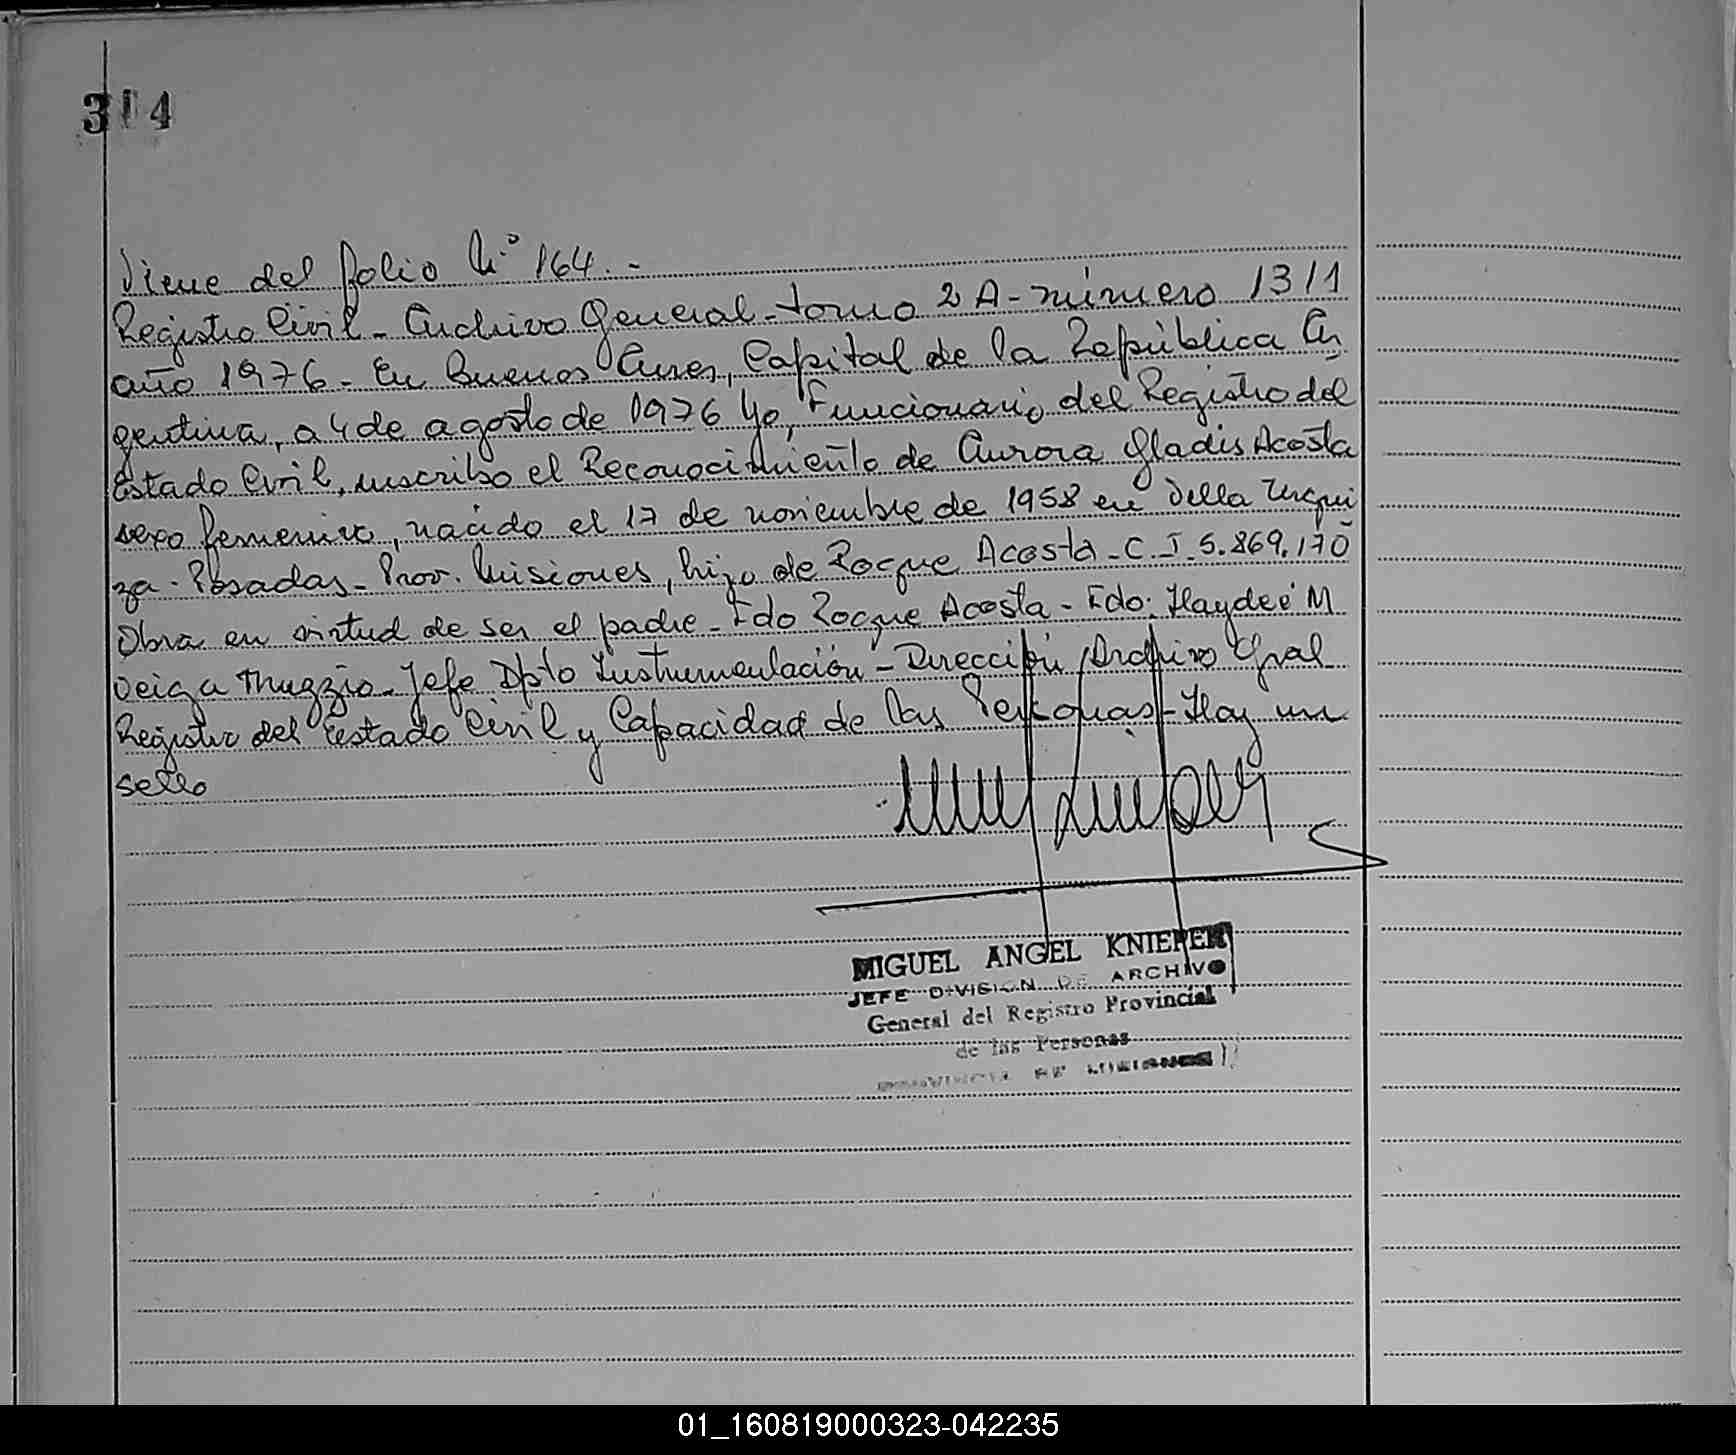 314
Viene del folio N° 164.-
Registro Civil - Archivo General - tomo 2 A - número 1311
año 1976 - En Buenos Aires, Capital de la República Ar
gentina, a 4 de agosto de 1976 Yo, Funcionario del Registro del
Estado Civil, inscribo el Reconocimiento de Aurora Gladis Acosta
sexo femenino, nacido el 17 de noviembre de 1958 en Villa Urqui
za - Posadas - Prov. Misiones, hijo de Roque Acosta - C.I. 5.869.170
Obra en virtud de ser el padre - Fdo Roque Acosta - Fdo: Haydeé M
Veiga Muzzio - Jefe Dpto Instrumentación - Dirección Archivo Gral
Registro del Estado Civil y Capacidad de las Personas - Hay un
sello
MIGUEL ANGEL KNIEPER
JEFE DIVISION DE ARCHIVO
General del Registro Provincial
de las Personas
PROVINCIA DE MISIONES
01_160819000323-042235